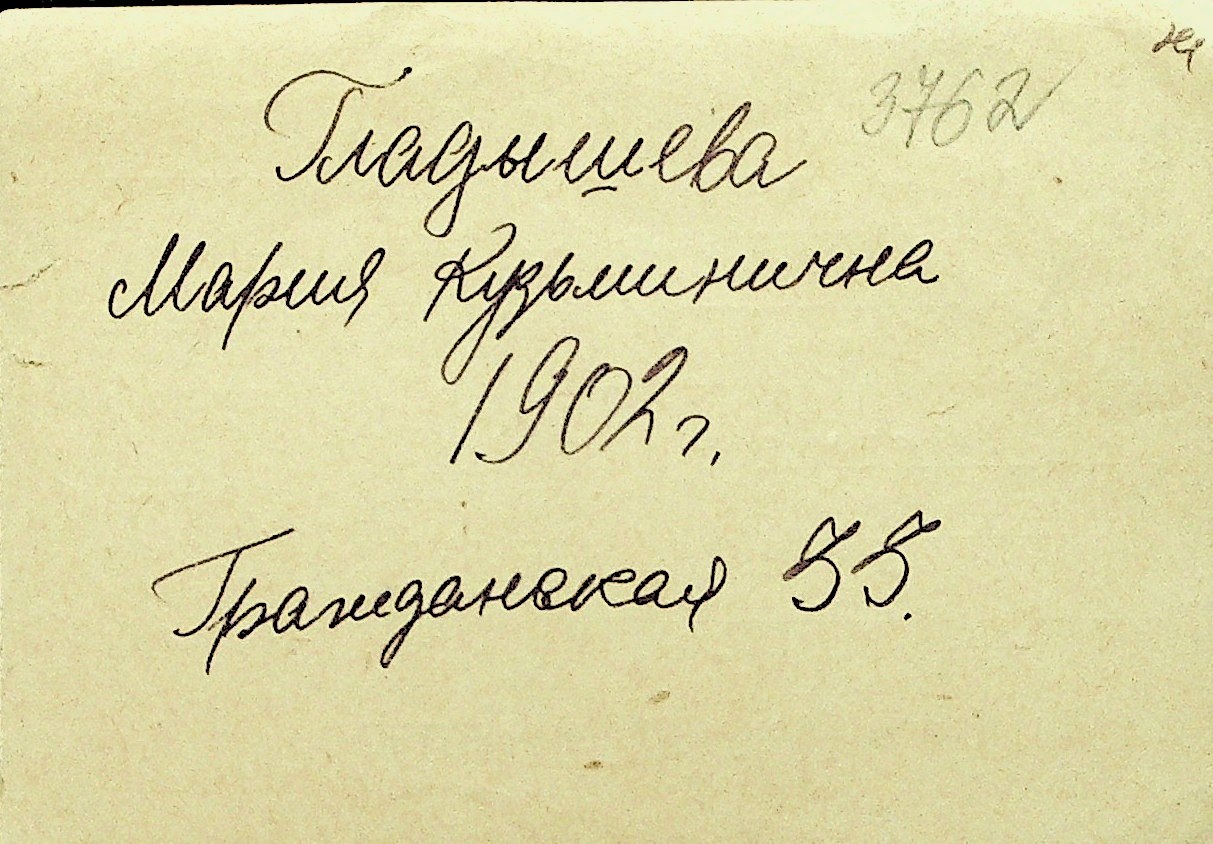 3762
Гладышева
Мария Кузьминична
1902 г.
Гражданская 33.